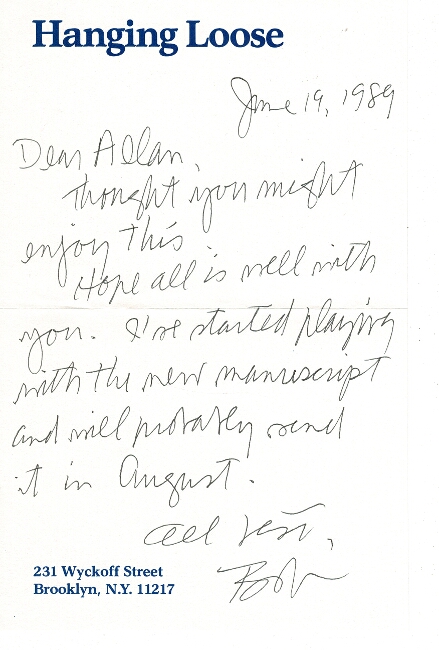 Hanging Loose
June 19, 1989
Dear Allan,
Thought you might
enjoy this
Hope all is well with
you. I've started playing
with the new manuscript
and will probably send
it in August.
All best,
Bob
231 Wyckoff Street
Brooklyn, N.Y. 11217